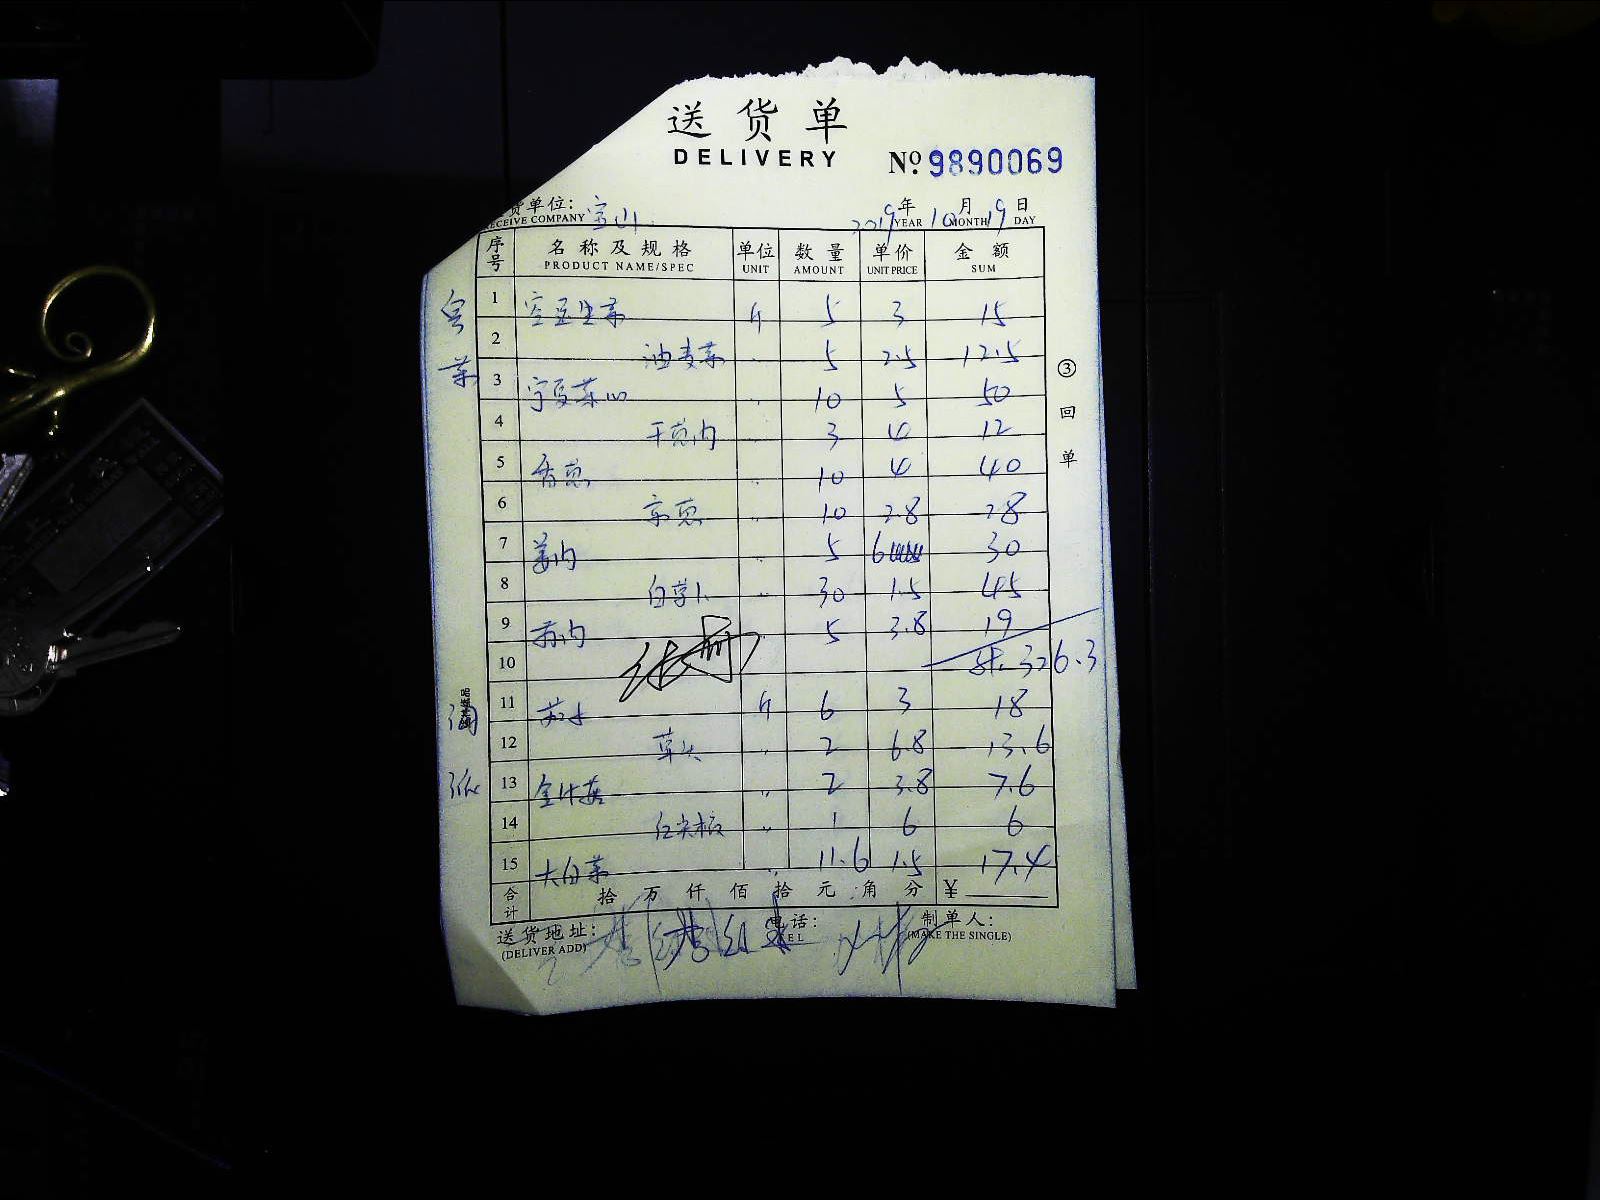 送货单
DELIVERY
№ 9890069
货单位: 宝山
RECEIVE COMPANY
2019年 10月 19日
YEAR MONTH DAY
序号 名称及规格 单位 数量 单价 金额
PRODUCT NAME/SPEC UNIT AMOUNT UNIT PRICE SUM
1 生菜 斤 5 3 15
2 油麦菜 〃 5 2.5 12.5
3 宁夏菜心 〃 10 5 50
4 干葱肉 〃 3 4 12
5 香葱 〃 10 4 40
6 京葱 〃 10 2.8 28
7 姜肉 〃 5 6 30
8 白萝卜 〃 30 1.5 45
9 肉 〃 5 3.8 19
10 326.3
11 斤 6 3 18
12 草头 〃 2 6.8 13.6
13 金针菇 〃 2 3.8 7.6
14 红尖椒 〃 1 6 6
15 大白菜 〃 11.6 1.5 17.4
合计 拾 万 仟 佰 拾 元 角 分 ¥
送货地址: 电话: 制单人:
(DELIVER ADD) TEL (MAKE THE SINGLE)
③回单